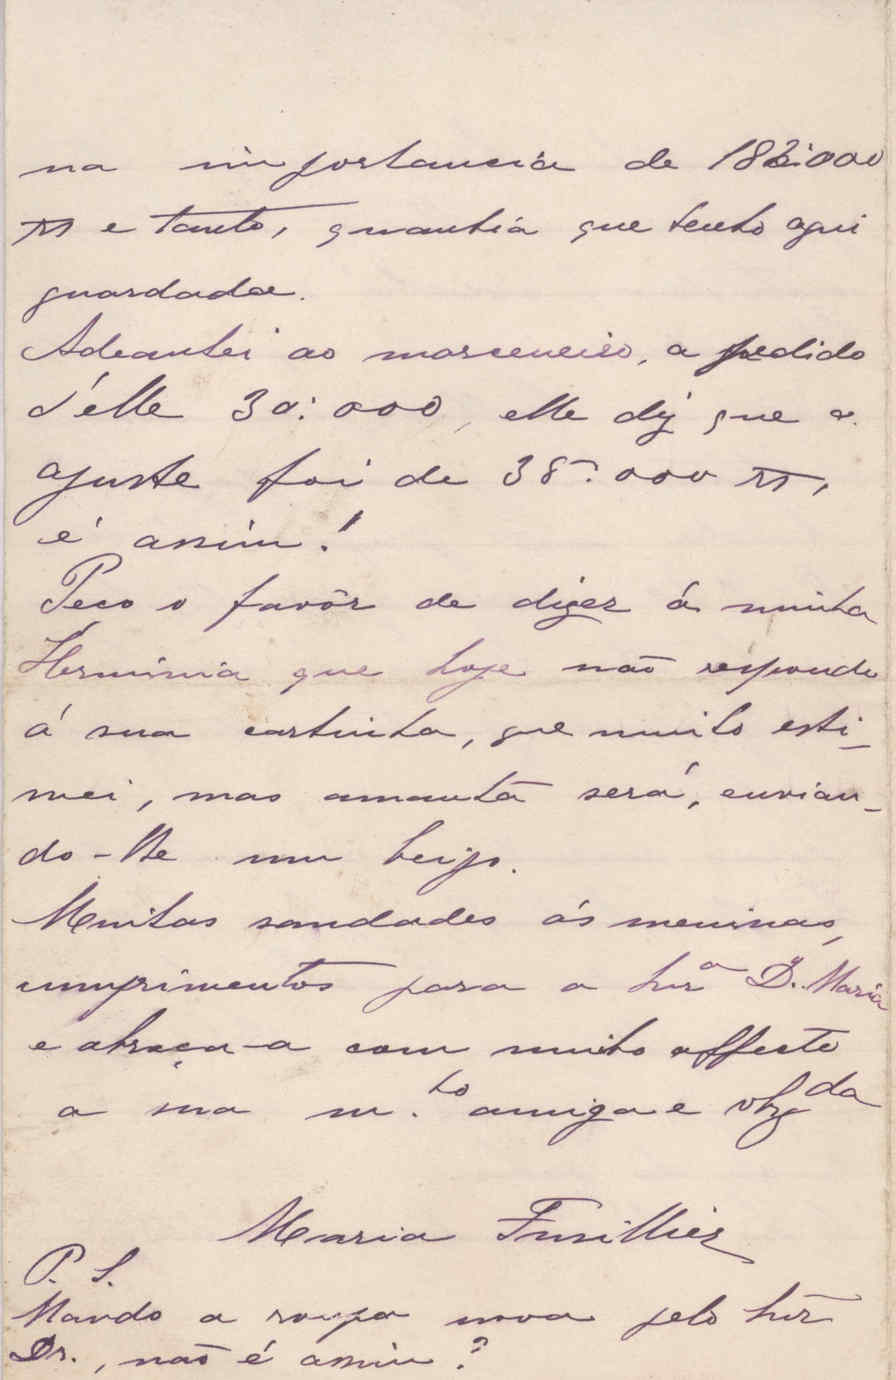 na importancia de 182:000
rs e tanto, quantia que tenho aqui
guardada.
Adeantei ao marceneiro, a pedido
d'élle 30:000, elle diz que o
ajuste foi de 38:000 rs,
é assim!
Peco o favôr de dizer á minha
Herminia que hoje não respondo
á sua cartinha, que muito esti-
mei, mas amanhã será, envian-
do-lhe um beijo.
Muitas saudades ás meninas,
cumprimentos para a Snrª D. Maria
e abraça-a com muito affecto
a sua m.to amiga e obgda
Maria
P. S.
Mando a roupa nova pelo Snr
Dr., não é assim?